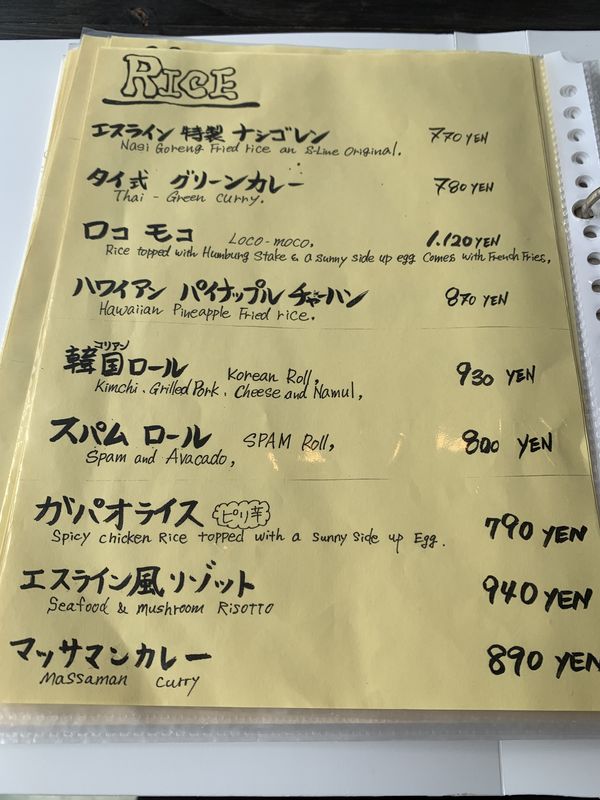 RICE
エスライン 特製 ナシゴレン 770 YEN
Nasi Goreng Fried rice an S-Line Original.
タイ式 グリーンカレー 780 YEN
Thai - Green curry.
ロコ モコ Loco-moco, 1.120 YEN
Rice topped with Humburg Stake & a sunny side up egg Comes with French Fries,
ハワイアン パイナップル チャーハン 870 YEN
Hawaiian Pineapple Fried rice.
コリアン
韓国ロール Korean Roll, 930 YEN
Kimchi、Grilled Pork、Cheese and Namul,
スパム ロール SPAM Roll, 800 YEN
Spam and Avacado,
ガパオライス ピリ辛 790 YEN
Spicy chicken Rice topped with a sunny side up Egg.
エスライン風リゾット 940 YEN
Seafood & mushroom Risotto
マッサマンカレー 890 YEN
Massaman curry